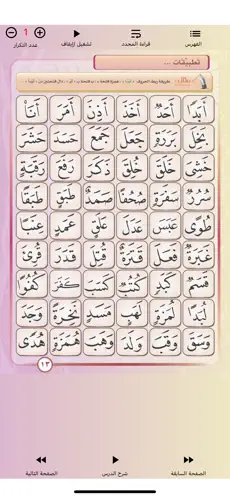 الفهرس
قراءة المحدد
تشغيل إيقاف
1
عدد التكرار
تطبيقات ...
أَبَدًا أَحَدٌ أَخَذَ أَذِنَ أَمَرَ أَنَا
بَخِلَ بَرَرَةٍ جَعَلَ جَمَعَ حَسَدَ حَشَرَ
خَشِيَ خَلَقَ خُلِقَ ذَكَرَ رَفَعَ رَقَبَةٍ
سُرُرٌ سَفَرَةٍ صُحُفًا صَمَدٌ طَبَقٍ طَبَقًا
طُوًى عَبَسَ عَدَلَ عَلَقٍ عَمَدٍ عِنَبًا
غَبَرَةٌ فَعَلَ قَتَرَةٌ قُتِلَ قَدَرَ قُرِئَ
قَسَمٌ كَبَدٍ كُتُبٌ كَسَبَ كَفَرَ كُفُوًا
لُبَدًا لُمَزَةٍ لَهَبٍ مَسَدٍ نَخِرَةً وَجَدَ
وَسَقَ وَقَبَ وَلَدَ وَهَبَ هُمَزَةٍ هُدًى
١٣
الصفحة السابقة
شرح الدرس
الصفحة التالية